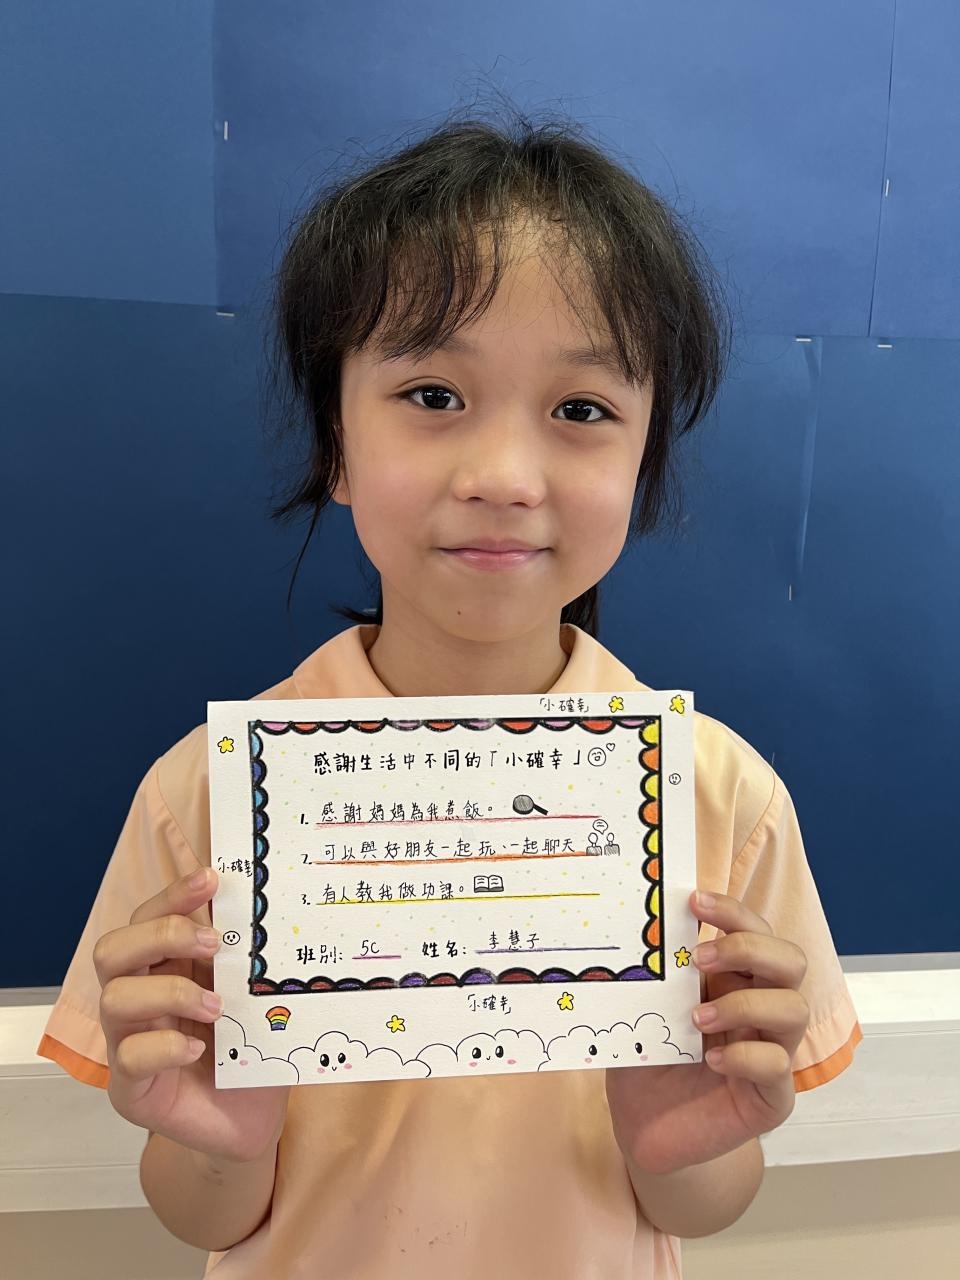 「小確幸」
感謝生活中不同的「小確幸」
1. 感謝媽媽為我煮飯。
2. 可以與好朋友一起玩、一起聊天
「小確幸」
3. 有人教我做功課。
班別: 5C 姓名: 李慧子
「小確幸」